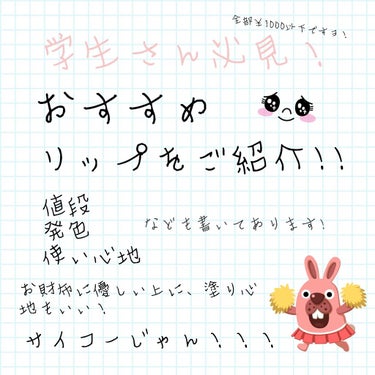 全部¥1000以下ですよ!
学生さん必見!
おすすめ
リップをご紹介!!
値段
発色
使い心地
なども書いてあります!
お財布に優しい上に、塗り心
地もいい!
サイコーじゃん!!!